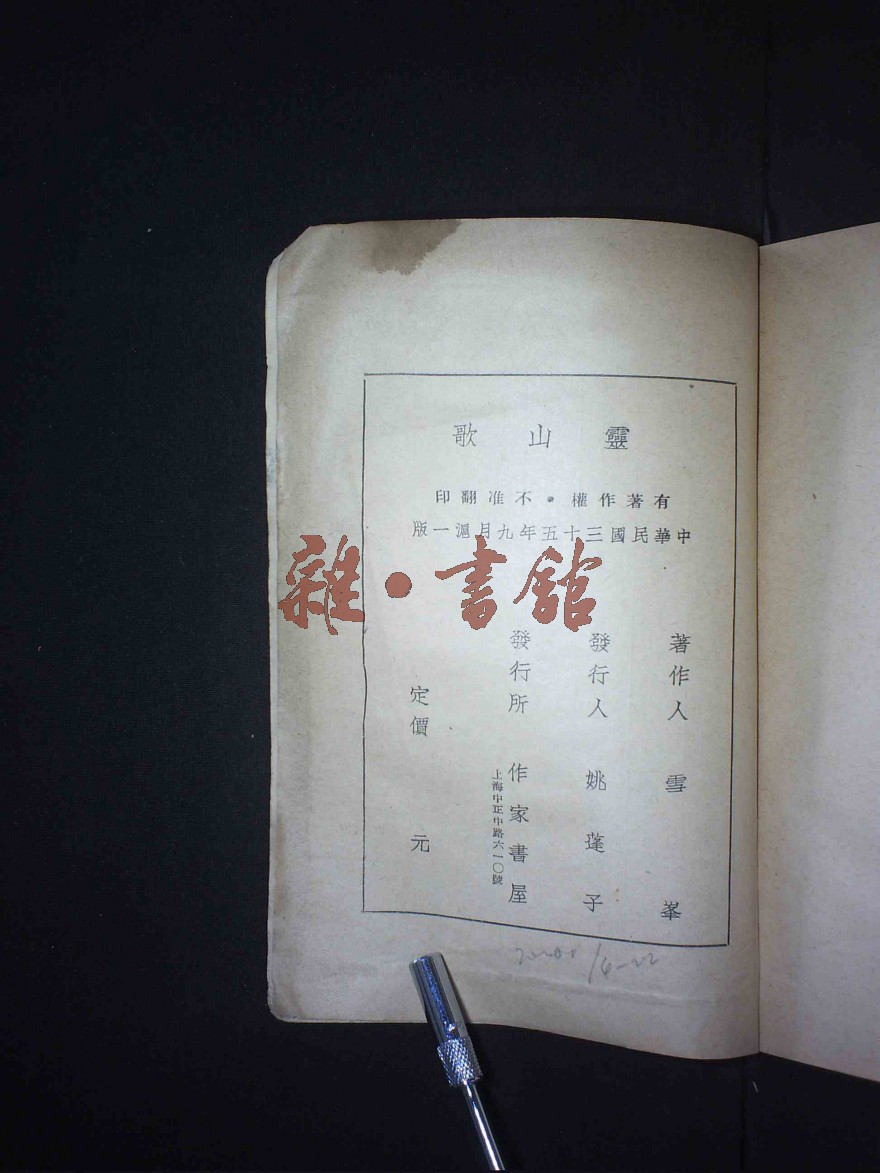 靈山歌
有著作權•不准翻印
中華民國三十五年九月滬一版
著作人 雪峯
發行人 姚蓬子
發行所 作家書屋
上海中正中路六一〇號
定價 元
雜•書館